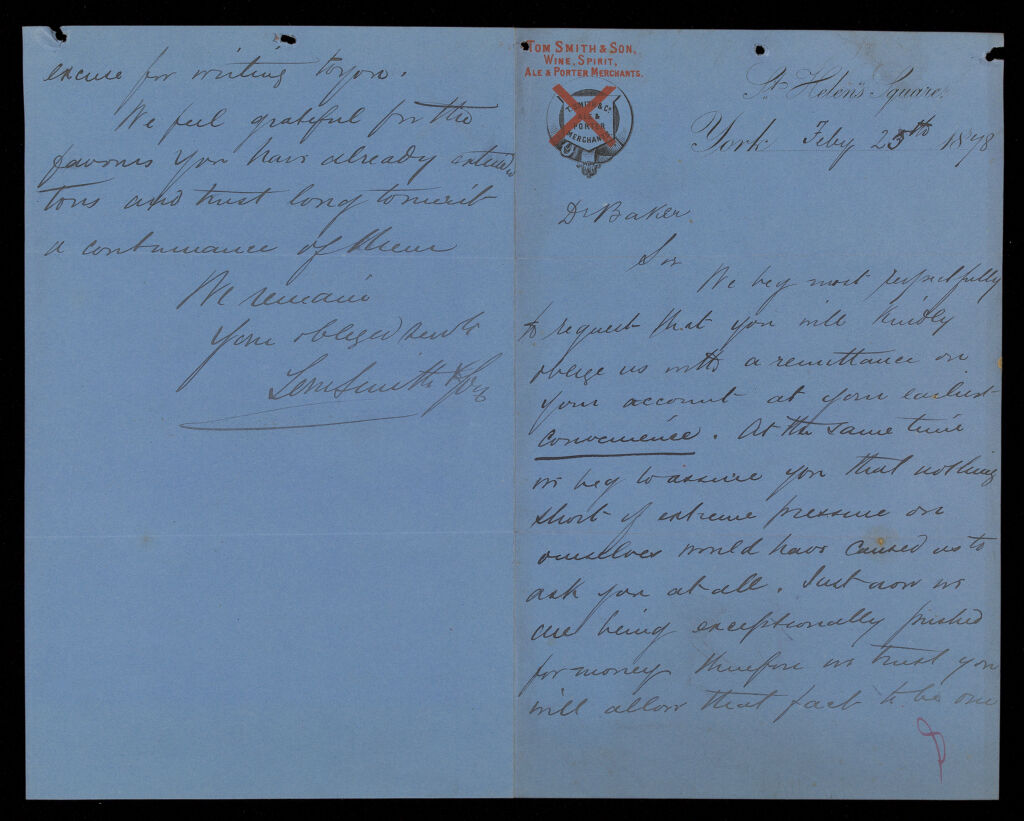 TOM SMITH & SON,
WINE, SPIRIT,
ALE & PORTER MERCHANTS.
T. SMITH & Co
ALE &
PORTER
MERCHANTS
St. Helen's Square,
York Feby 25th 1878
Dr Baker
Sir
We beg most respectfully
to request that you will kindly
oblige us with a remittance on
your account at your earliest
convenience. At the same time
we beg to assure you that nothing
short of extreme pressure on
ourselves would have caused us to
ask you at all. Just now we
are being exceptionally pushed
for money therefore we trust you
will allow that fact to be our
excuse for writing to you.
We feel grateful for the
favours you have already extended
to us and trust long to merit
a continuance of them
We remain
Your obliged servts
Tom Smith & Son